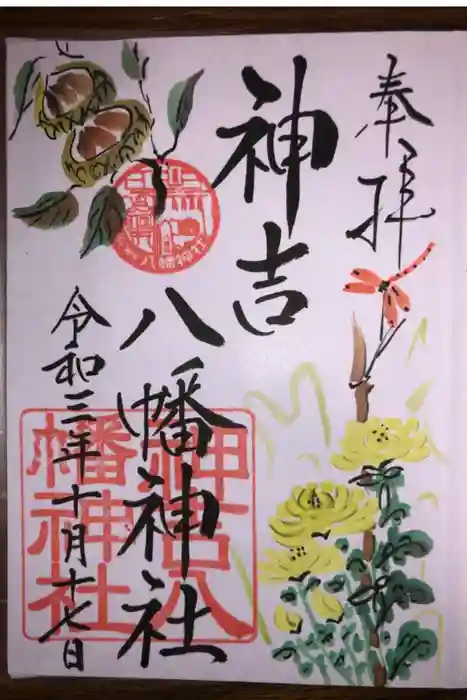 奉拝
神吉
八幡神社
令和三年十月十七日
神吉八
幡神社
八幡神社